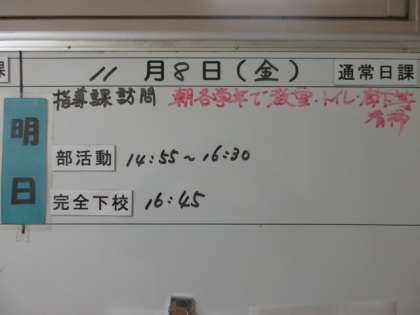 課 11月8日(金) 通常日課
明日
指導課訪問 朝各学年で教室・トイレ・廊下等
清掃
部活動 14:55~16:30
完全下校 16:45